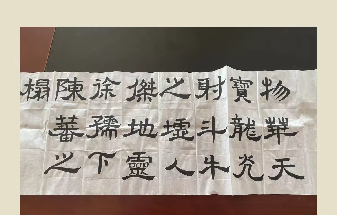 物華天
寶龍光
射斗牛
之墟人
傑地靈
徐孺下
陳蕃之
榻